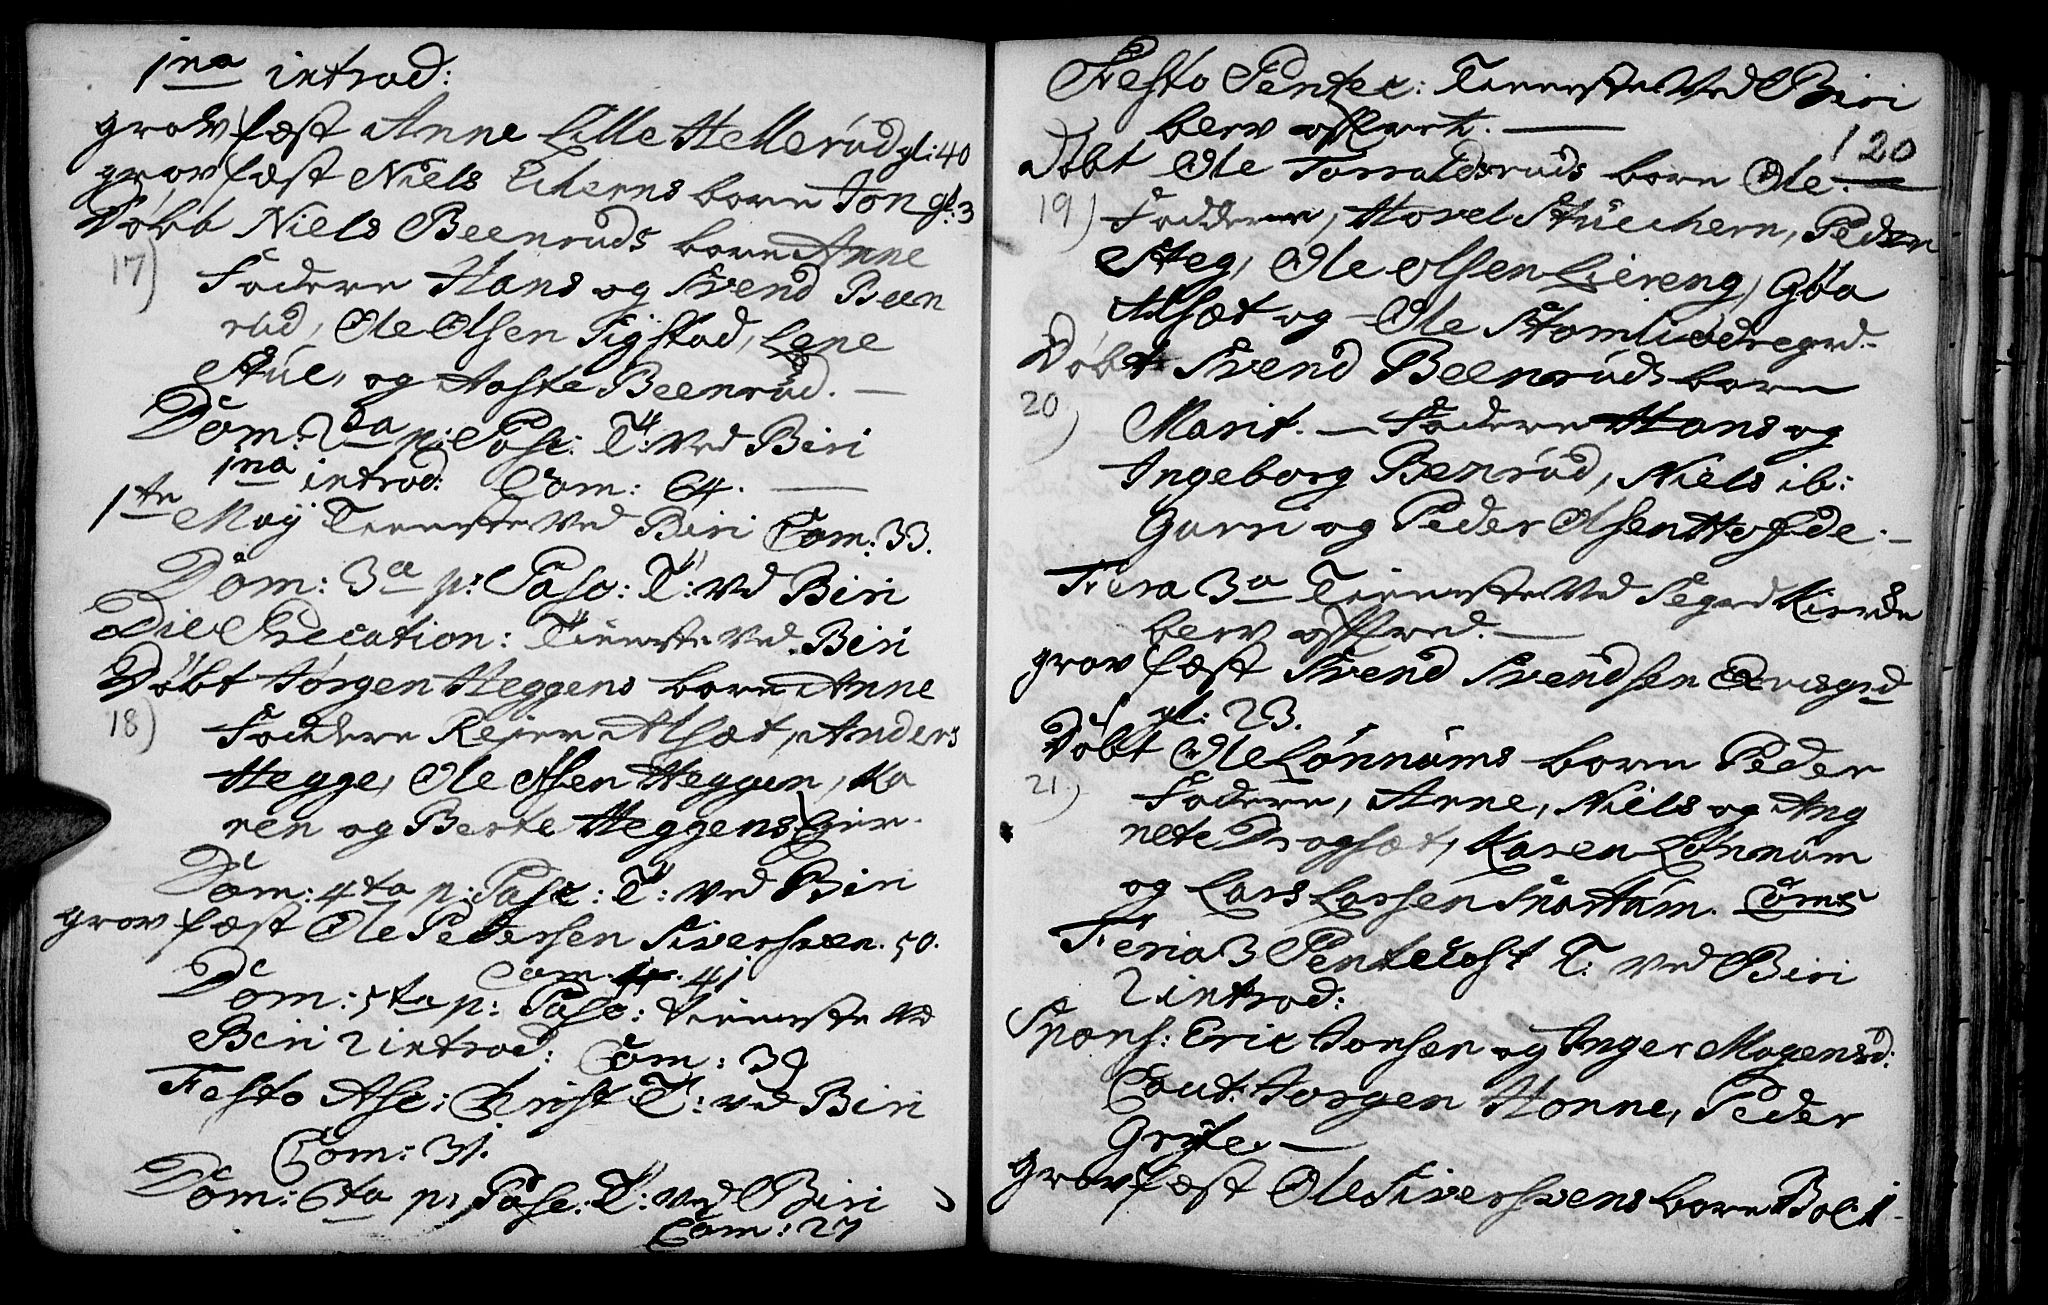 1na introd:
grov fæst Anne Lille Hellerud gl: 40
grov fæst Niels Echerns barn Jon gl: 3
Döbt Niels Beenruds barn Anne
17) Faddere Hans og Svend Been
rud, Ole Olsen Sigstad, Lene
Stüe, og Aaste Beenrud. —
Dom: 2da p: Pasc: T: ved Biri
1na introd: Com: 64. —
1te Maÿ Tieneste ved Biri Com: 33.
Dom: 3a p: Pasc: T: ved Biri
Die Precation: Tieneste ved Biri
Döbt Jörgen Heggens barn Anne
18) Faddere Rejer Alsæt, Anders
Hegge, Ole Olsen Heggen, Ka
ren og Berte Heggens Eier.
Dom: 4ta p: Pasc: T: ved Biri
grov fæst Ole Pedersen Siversveen. 50.
Com. 41
Dom: 5ta p: Pasc: Tieneste ved
Biri 2 introd: Com: 39
Festo Asc: Christ T: ved Biri
Com: 31.
Dom: 6ta p: Pasc: T: ved Biri
Com: 27
Festo Pentec: Tieneste ved Biri
blev offert. —
120
Döbt Ole Torraldsruds barn Ole. —
19) Faddere, Hovel Stüechern, Peder
Steg, Ole Olsen Liereng, Göa
Alsæt og Ole Stomlieedregrd. —
Döbt Svend Beenruds barn
20) Marit. — Faddere Hans og
Ingeborg Benrud, Niels ib:
Gurri og Peder Olsen Hofde. —
Feria 3a Tieneste ved Segrd Kierche
blev offred. —
grov fæst Svend Svendsen
gl: 23.
Döbt Ole Lönnums barn Peder
21) Faddere, Anne, Niels og Ang
nete Dragsæt, Karen Lönnum
og Lars Larsen Snartum. Com:
Feria 3 Pentecost T: ved Biri
2 introd:
Spons: Eric Jonsen og Inger Mogensd:
Caut: Jorgen Honne, Peder
Gryte. —
grov fæst Ole Siversveens barn Boel 1